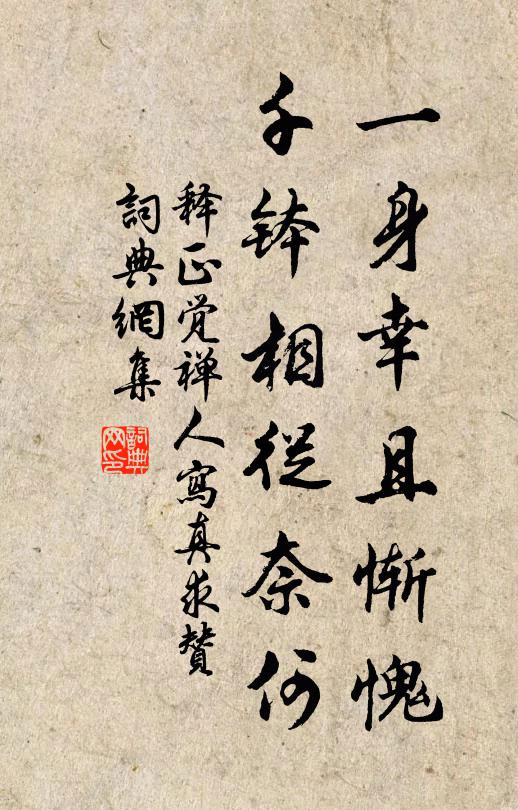 一身幸且惭愧
千钵相從奈何
释正觉禅人寫真求贊
詞典網集
詞典網印